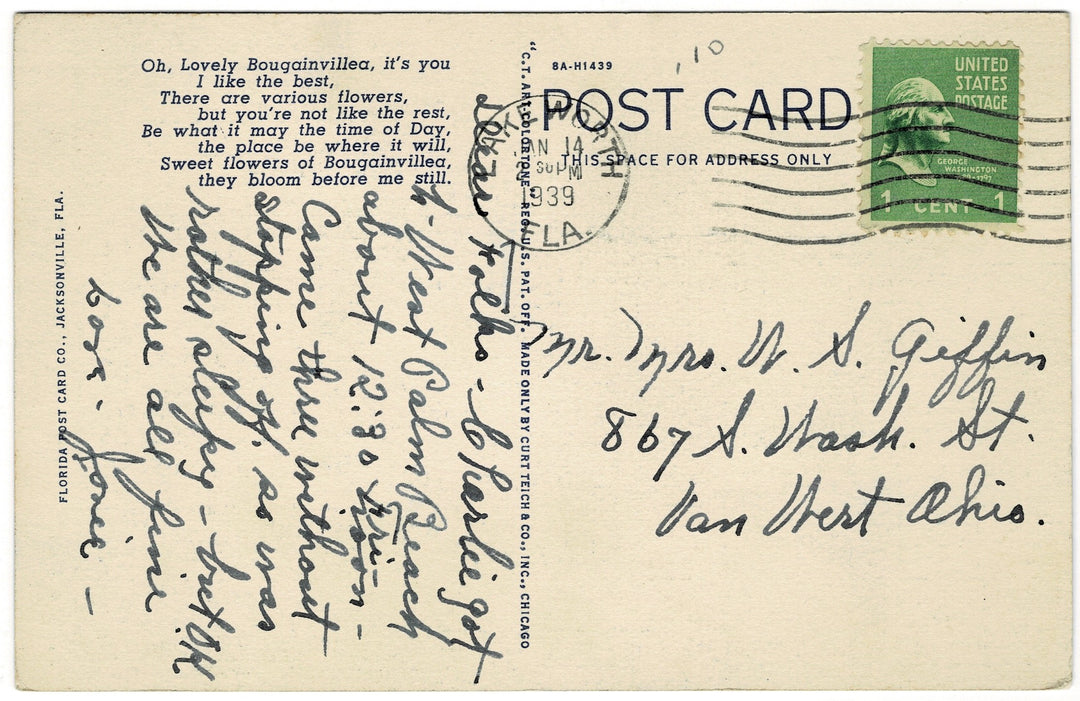 Oh, Lovely Bougainvillea, it's you
I like the best,
There are various flowers,
but you're not like the rest,
Be what it may the time of Day,
the place be where it will,
Sweet flowers of Bougainvillea,
they bloom before me still.
FLORIDA POST CARD CO., JACKSONVILLE, FLA.
Dear Folks - Charlie got
to West Palm Beach
about 12:30 Fri- noon -
Came three without
stopping off. so was
rather sleepy - but OK.
We are all fine
Love -
"C.T. ART-COLORTONE" REG. U.S. PAT. OFF. MADE ONLY BY CURT TEICH & CO., INC., CHICAGO
8A-H1439
10
POST CARD
THIS SPACE FOR ADDRESS ONLY
LAKE WORTH
JAN 14
30 PM
1939
FLA.
UNITED
STATES
POSTAGE
GEORGE
WASHINGTON
1 CENT 1
Mr. Mrs. W. S. Giffin
867 S. Wash. St.
Van Wert Ohio.